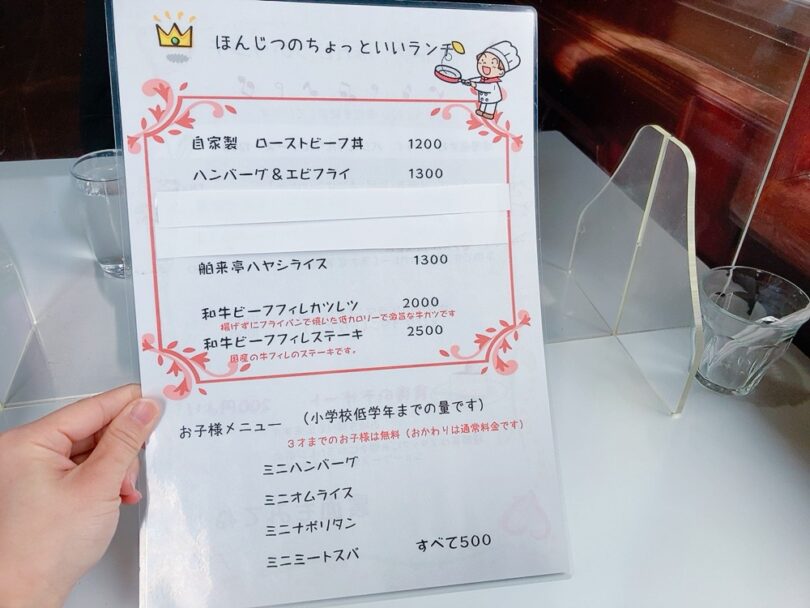 ほんじつのちょっといいランチ
自家製 ローストビーフ丼 1200
ハンバーグ&エビフライ 1300
舶来亭ハヤシライス 1300
和牛ビーフフィレカツレツ 2000
揚げずにフライパンで焼いた低カロリーで激旨な牛カツです
和牛ビーフフィレステーキ 2500
国産の牛フィレのステーキです。
お子様メニュー (小学校低学年までの量です)
3才までのお子様は無料(おかわりは通常料金です)
ミニハンバーグ
ミニオムライス
ミニナポリタン
ミニミートスパ すべて500